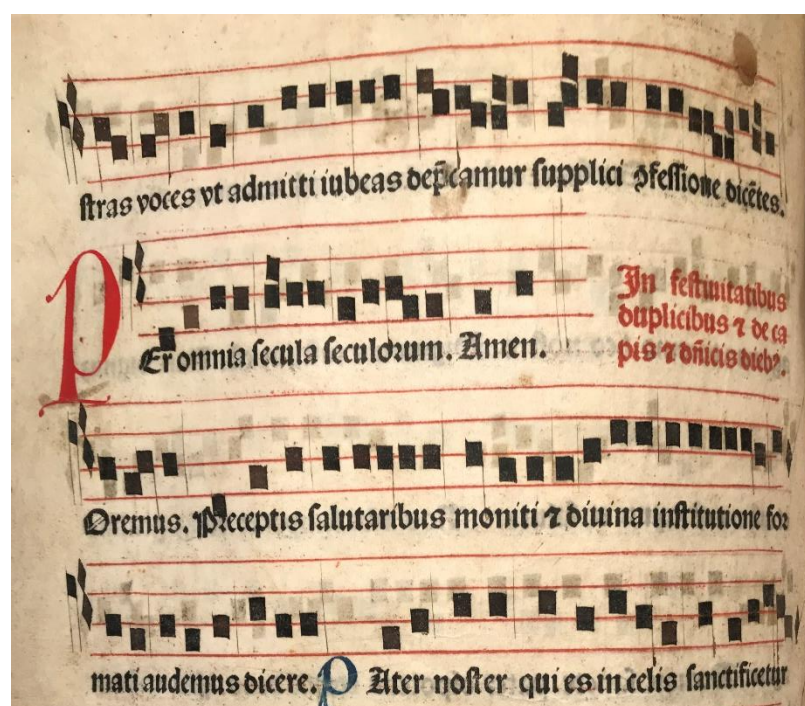 ſtras voces vt admitti iubeas dep̄camur ſupplici ꝓfeſſione dicētes.
PEr omnia ſecula ſeculoꝛum. Amen.
In feſtiuitatibus
duplicibus ⁊ de ca
pis ⁊ dn̄icis diebꝰ.
Oremus. Preceptis ſalutaribus moniti ⁊ diuina inſtitutione foꝛ
mati audemus dicere. PAter noſter qui es in celis ſanctificetur